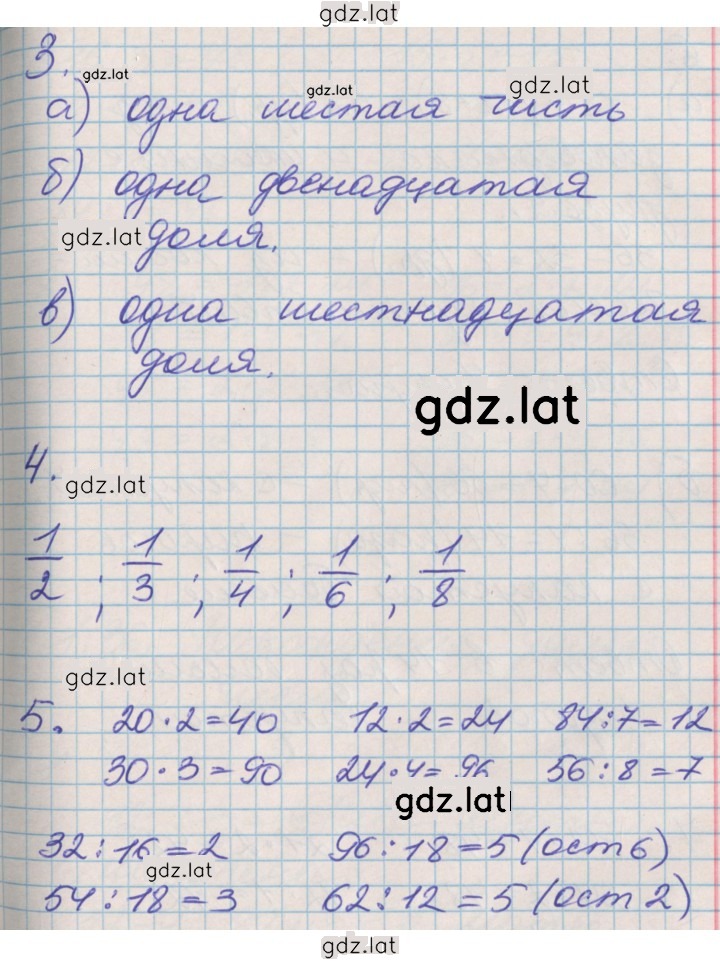 gdz.lat
3.
gdz.lat
gdz.lat
gdz.lat
а) одна шестая чисть
б) одна двенадцатая
gdz.lat доля.
в) одна шестнадцатая
доля.
gdz.lat
4.
gdz.lat
1/2 ; 1/3 ; 1/4 ; 1/6 ; 1/8
gdz.lat
5. 20·2=40 12·2=24 84:7=12
30·3=90 24·4=96 56:8=7
gdz.lat
32:16=2 96:18=5 (ост 6)
gdz.lat
54:18=3 62:12=5 (ост 2)
gdz.lat